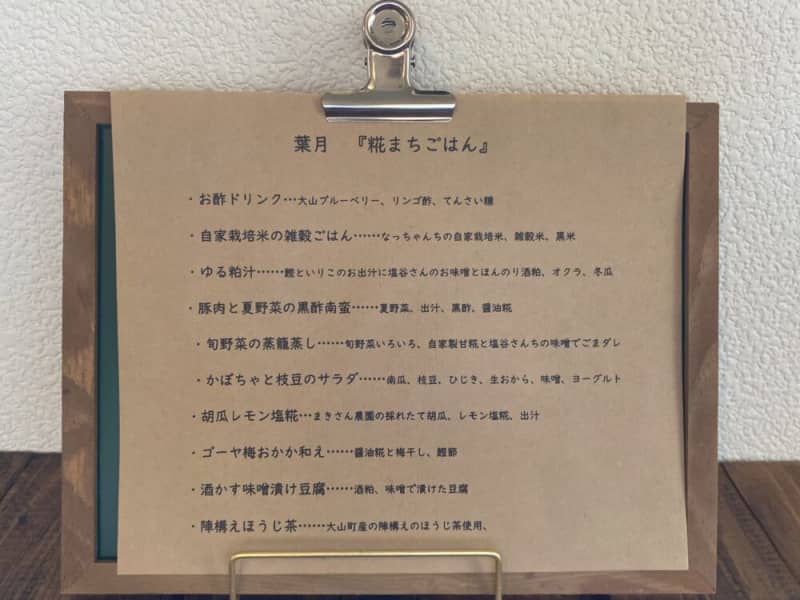 葉月 『糀まちごはん』
・お酢ドリンク…大山ブルーベリー、リンゴ酢、てんさい糖
・自家栽培米の雑穀ごはん……なっちゃんちの自家栽培米、雑穀米、黒米
・ゆる粕汁……鰹といりこのお出汁に塩谷さんのお味噌とほんのり酒粕、オクラ、冬瓜
・豚肉と夏野菜の黒酢南蛮……夏野菜、出汁、黒酢、醤油糀
・旬野菜の蒸籠蒸し……旬野菜いろいろ、自家製甘糀と塩谷さんちの味噌でごまダレ
・かぼちゃと枝豆のサラダ……南瓜、枝豆、ひじき、生おから、味噌、ヨーグルト
・胡瓜レモン塩糀…まきさん農園の採れたて胡瓜、レモン塩糀、出汁
・ゴーヤ梅おかか和え……醤油糀と梅干し、鰹節
・酒かす味噌漬け豆腐……酒粕、味噌で漬けた豆腐
・陣構えほうじ茶……大山町産の陣構えのほうじ茶使用、